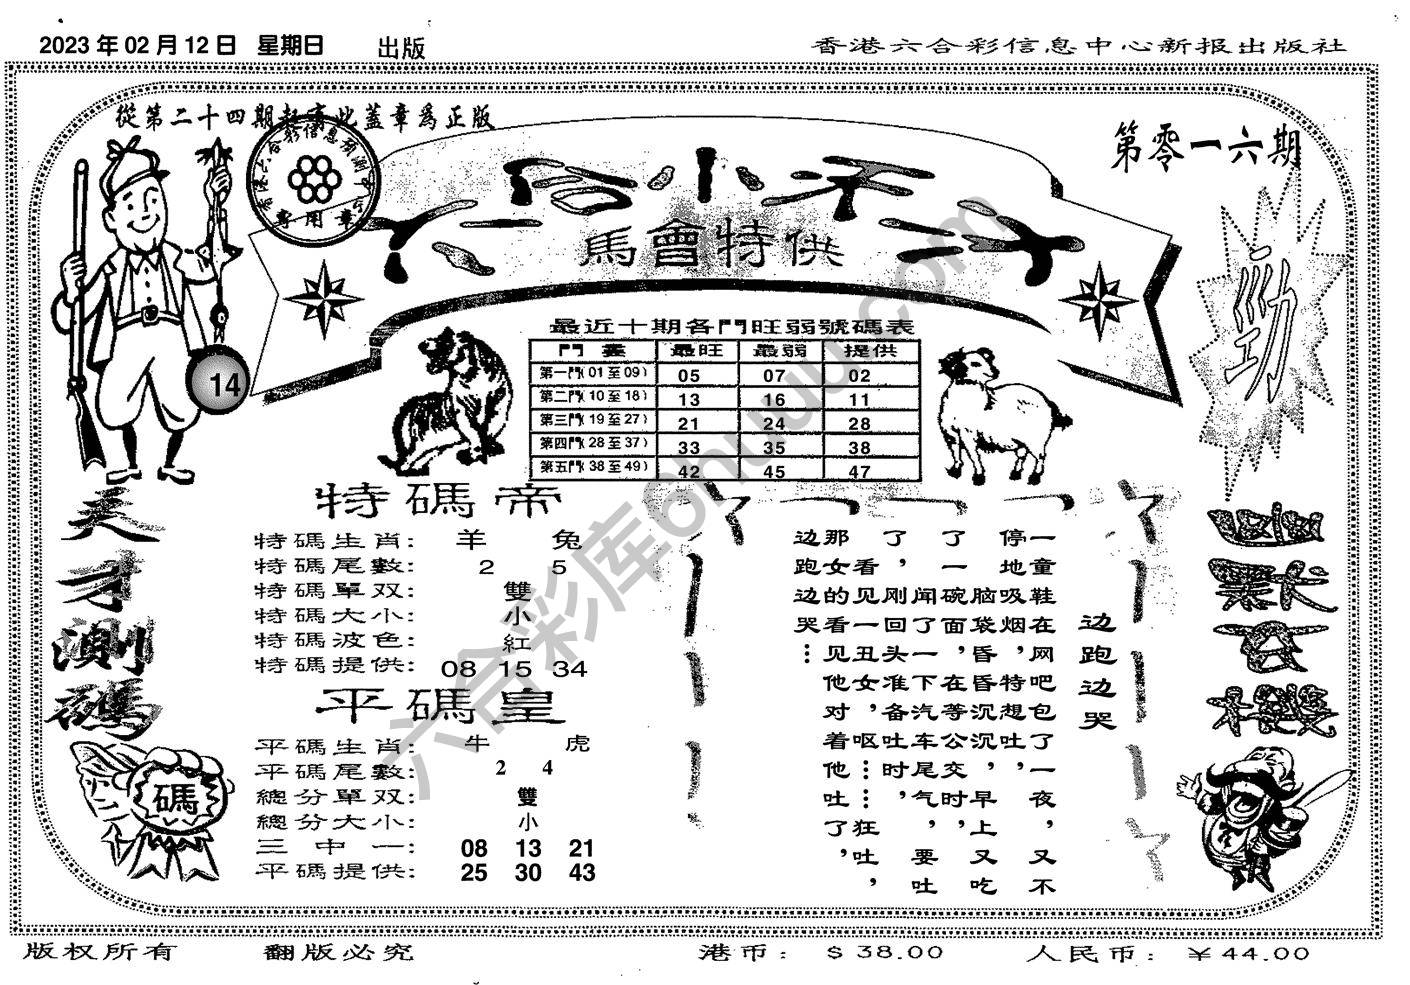 2023年02月12日 星期日 出版
香港六合彩信息中心新报出版社
從第二十四期起盖此蓋章為正版
第零一六期
專用章
馬會特供
勁
14
最近十期各門旺弱號碼表
門 最旺 最弱 提供
第一門(01至09) 05 07 02
第二門(10至18) 13 16 11
第三門(19至27) 21 24 28
第四門(28至37) 33 35 38
第五門(38至49) 42 45 47
天才測碼
碼
特碼帝
特碼生肖: 羊 兔
特碼尾數: 2 5
特碼單双: 雙
特碼大小: 小
特碼波色: 紅
特碼提供: 08 15 34
平碼皇
平碼生肖: 牛 虎
平碼尾數: 2 4
總分單双: 雙
總分大小: 小
三中一: 08 13 21
平碼提供: 25 30 43
边跑边哭
一童鞋在网吧包了一夜，又不
停地吸烟，特想吐，
脑袋昏昏沉沉，早上又吃
了一碗面，在等公交时，
闻了一下汽车尾气，要吐
了，刚回头准备吐时，
看见一丑女，呕……狂吐，
那女的看见他对着他吐了，
边跑边哭…
六合彩库6huuu.com
版权所有 翻版必究 港币: $38.00 人民币: ￥44.00